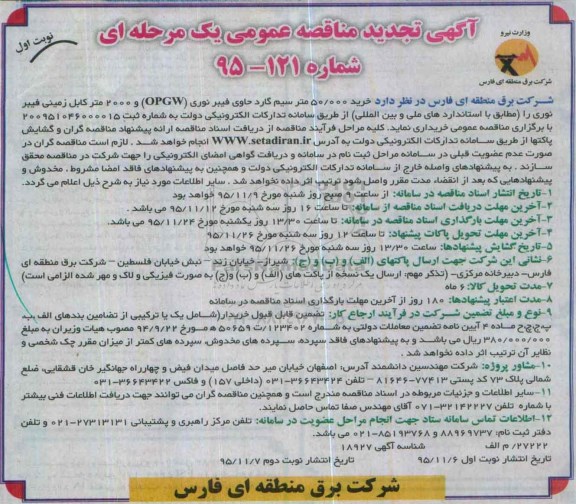 آگهی تجدید مناقصه عمومی یک مرحله ای
شماره ۱۲۱- ۹۵
نوبت اول
وزارت نیرو
شرکت برق منطقه ای فارس
شرکت برق منطقه ای فارس در نظر دارد خرید ۵۰/۰۰۰ متر سیم گارد حاوی فیبر نوری (OPGW) و ۲۰۰۰ متر کابل زمینی فیبر
نوری را (مطابق با استاندارد های ملی و بین المللی) از طریق سامانه تدارکات الکترونیکی دولت به شماره ثبت ۲۰۰۹۵۱۰۴۶۰۰۰۰۱۵
با برگزاری مناقصه عمومی خریداری نماید. کلیه مراحل فرآیند مناقصه از دریافت اسناد مناقصه تا ارائه پیشنهاد مناقصه گران و گشایش
پاکتها از طریق سامانه تدارکات الکترونیکی دولت به آدرس WWW.setadiran.ir انجام خواهد شد. لازم است مناقصه گران در
صورت عدم عضویت قبلی در سامانه مراحل ثبت نام در سامانه و دریافت گواهی امضای الکترونیکی را جهت شرکت در مناقصه محقق
سازند. به پیشنهادهای واصله خارج از سامانه تدارکات الکترونیکی دولت و همچنین به پیشنهادهای فاقد امضا مشروط، مخدوش و
پیشنهادهایی که بعد از انقضاء مدت مقرر واصل شود ترتیب اثر داده نخواهد شد. سایر اطلاعات مورد نیاز به شرح ذیل اعلام می گردد.
۱-تاریخ انتشار اسناد مناقصه در سامانه: از ساعت ۹ صبح روز شنبه مورخ ۹۵/۱۱/۹ خواهد بود
۲-آخرین مهلت دریافت اسناد مناقصه از سامانه: تا ساعت ۱۶ روز سه شنبه مورخ ۹۵/۱۱/۱۲ می باشد.
۳-آخرین مهلت بارگذاری اسناد مناقصه در سامانه: تا ساعت ۱۳/۳۰ روز یکشنبه مورخ ۹۵/۱۱/۲۴ می باشد.
۴-آخرین مهلت تحویل پاکات پیشنهاد: تا ساعت ۱۲ روز سه شنبه مورخ ۹۵/۱۱/۲۶
۵-تاریخ گشایش پیشنهادها: ساعت ۱۳/۳۰ روز سه شنبه مورخ ۹۵/۱۱/۲۶ خواهد بود
۶-نشانی این شرکت جهت ارسال پاکتهای (الف) و (ب) و (ج): شیراز- خیابان زند – نبش خیابان فلسطین – شرکت برق منطقه ای
فارس- دبیرخانه مرکزی- (تذکر مهم: ارسال یک نسخه از پاکت های (الف) و (ب) و(ج) به صورت فیزیکی و لاک و مهر شده الزامی است)
۷-مدت تحویل کالا: ۶ ماه
۸-مدت اعتبار پیشنهادها: ۱۸۰ روز از آخرین مهلت بارگذاری اسناد مناقصه در سامانه
۹-نوع و مبلغ تضمین شرکت در فرآیند ارجاع کار: تضمین قابل قبول خریدار(شامل یک یا ترکیبی از تضامین بندهای الف،ب،
پ،ج،چ،ح ماده ۴ آیین نامه تضمین معاملات دولتی به شماره ۱۲۳۴۰۲/ت۵۰۶۵۹ ه مورخ ۹۴/۹/۲۲ مصوب هیات وزیران به مبلغ
۳۸۰/۰۰۰/۰۰۰ ریال می باشد و به پیشنهادهای فاقد سپرده، سپرده های مخدوش، سپرده های کمتر از میزان مقرر چک شخصی و
نظایر آن ترتیب اثر داده نخواهد شد.
۱۰-مشاور پروژه: شرکت مهندسین دانشمند آدرس: اصفهان خیابان میر حد فاصل میدان فیض و چهارراه جهانگیر خان قشقایی، ضلع
شمالی پلاک ۷۳ کد پستی ۷۷۴۱۳-۸۱۶۴۶ – تلفن ۳۶۶۴۳۴۲۴-۰۳۱ (داخلی ۱۵۷) و فاکس ۳۶۶۴۳۴۲۲-۰۳۱
۱۱-سایر اطلاعات و جزئیات مربوطه در اسناد مناقصه مندرج است و همچنین مناقصه گران می توانند جهت دریافت اطلاعات فنی بیشتر
با شماره تلفن ۳۲۱۴۲۲۲۷-۰۷۱ آقای مهندس صفا تماس حاصل نمایند.
۱۲-اطلاعات تماس سامانه ستاد جهت انجام مراحل عضویت در سامانه: تلفن مرکز راهبری و پشتیبانی ۲۷۳۱۳۱۳۱-۰۲۱ و تلفن
دفتر ثبت نام: ۸۸۹۶۹۷۳۷ و ۸۵۱۹۳۷۶۸-۰۲۱ می باشد.
۲۷۲۲۲/ م الف شناسه آگهی ۱۸۹۲۷
تاریخ انتشار نوبت اول ۹۵/۱۱/۶ تاریخ انتشار نوبت دوم ۹۵/۱۱/۷
شرکت برق منطقه ای فارس